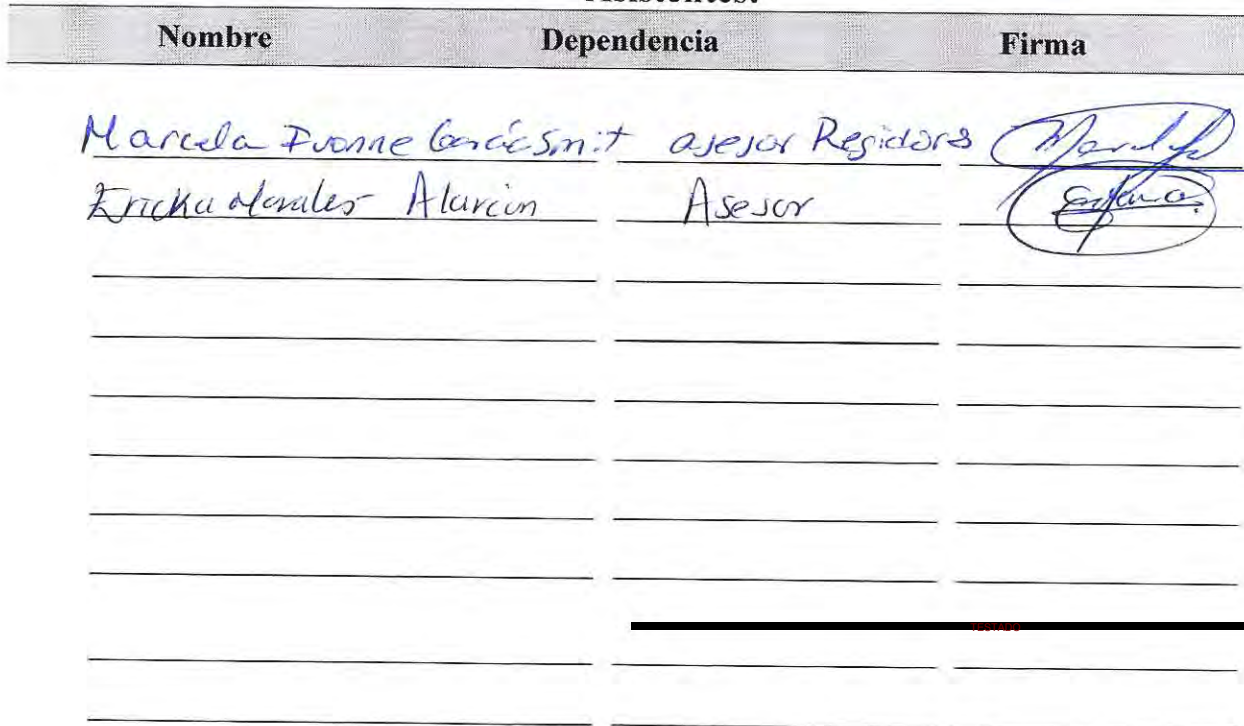 Asistentes:
Nombre Dependencia Firma
Marcela Ivonne García Smit asesor Regidors
Ericka Morales Alarcón Asesor
TESTADO